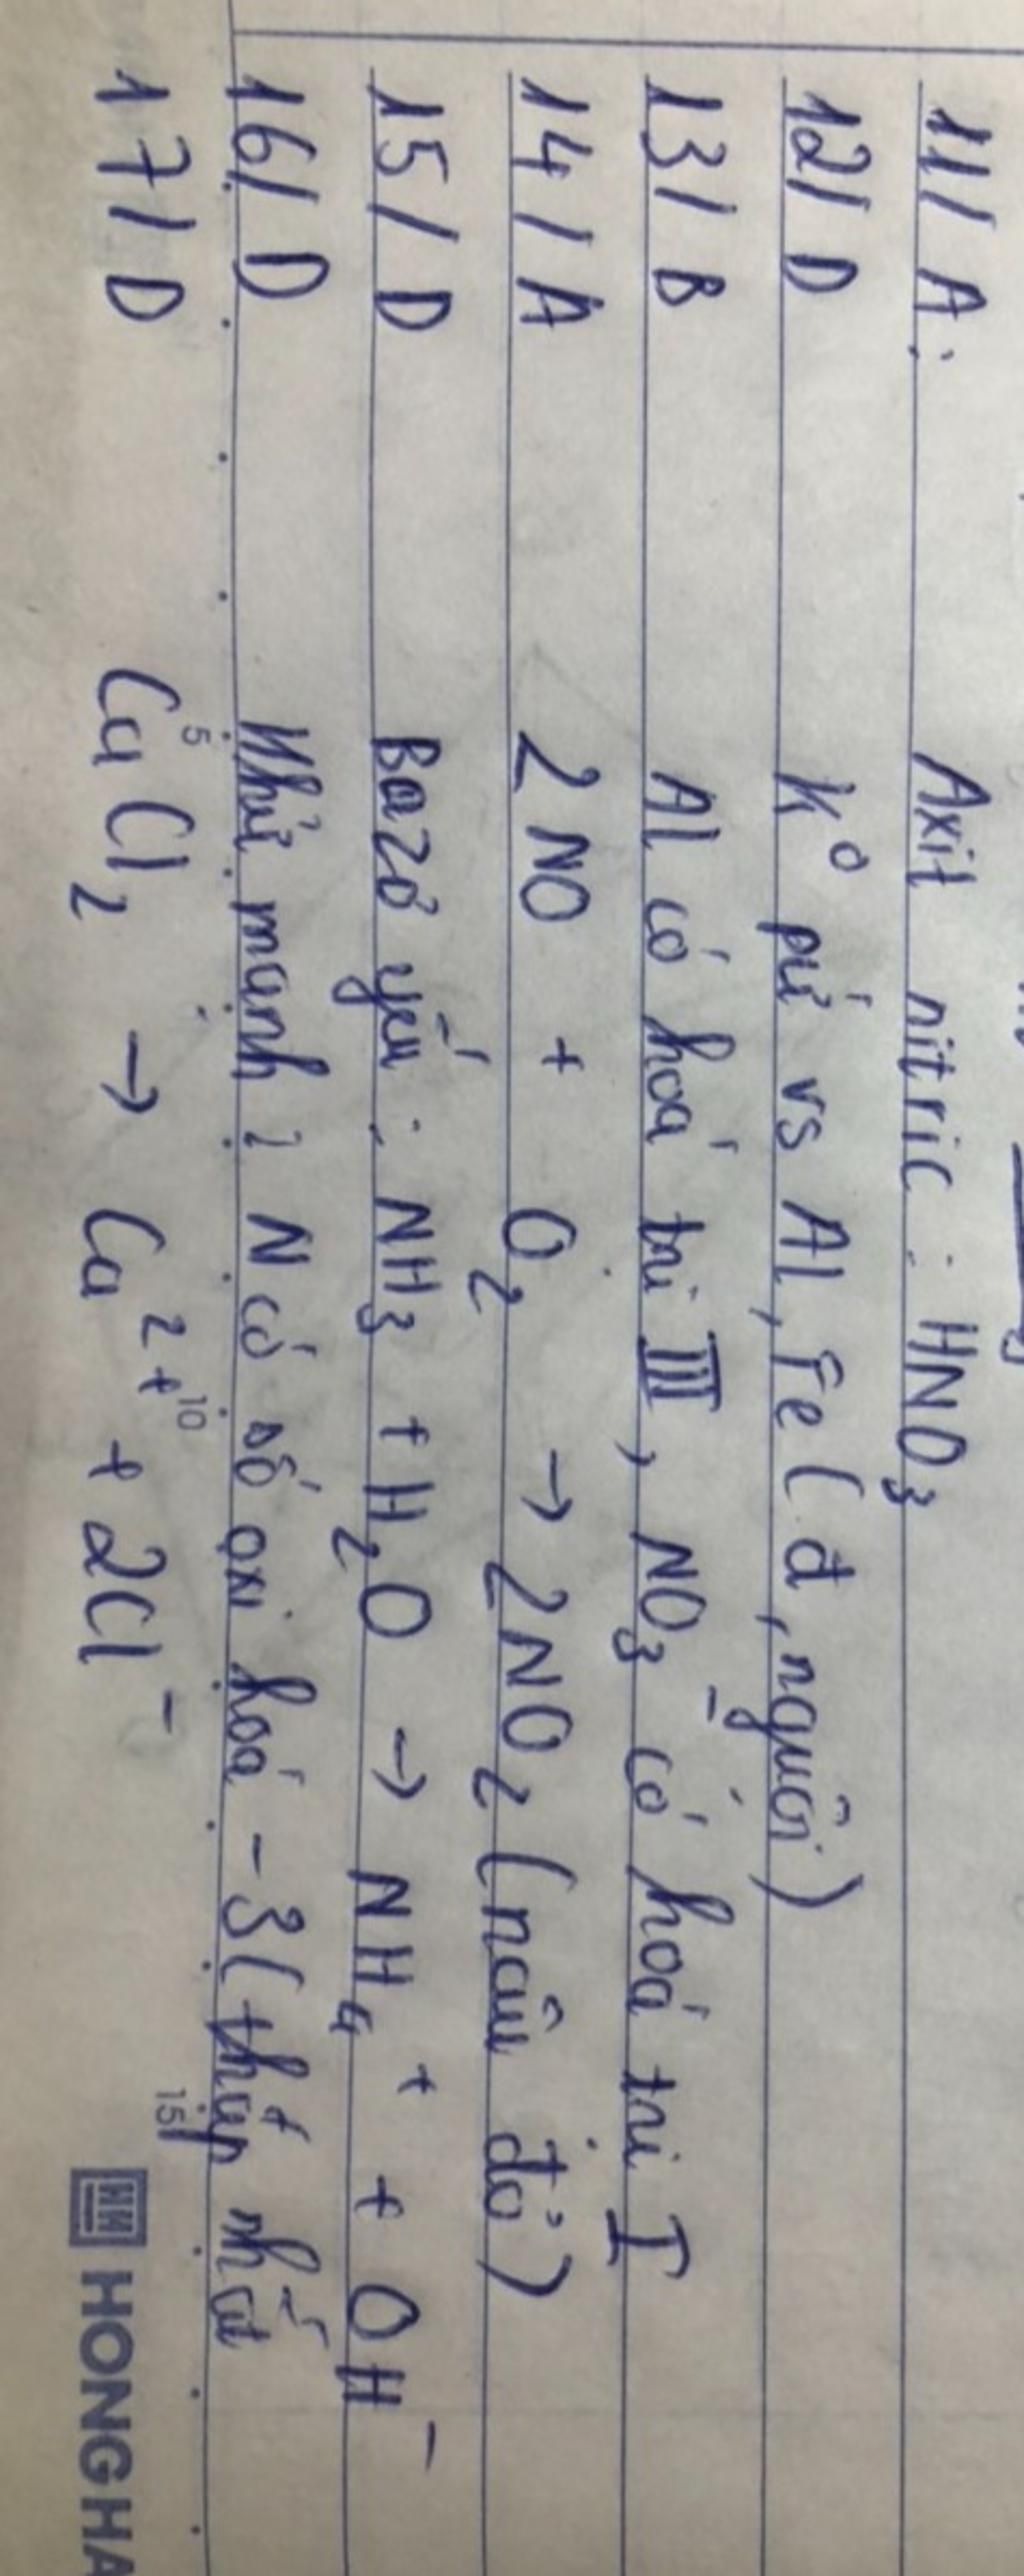 11/ A: Axit nitric: HNO₃
12/ D K⁰ pứ vs Al, Fe (đ, nguội)
13/ B Al có hoá trị III, NO₃⁻ có hoá trị I
14/ A 2NO + O₂ → 2NO₂ (nâu đỏ)
15/ D Bazơ yếu: NH₃ + H₂O → NH₄⁺ + OH⁻
16/ D Khử mạnh: N có số oxi hoá -3 (thấp nhất
17/ D CaCl₂ → Ca²⁺ + 2Cl⁻
5 10 15
HH HONG HA